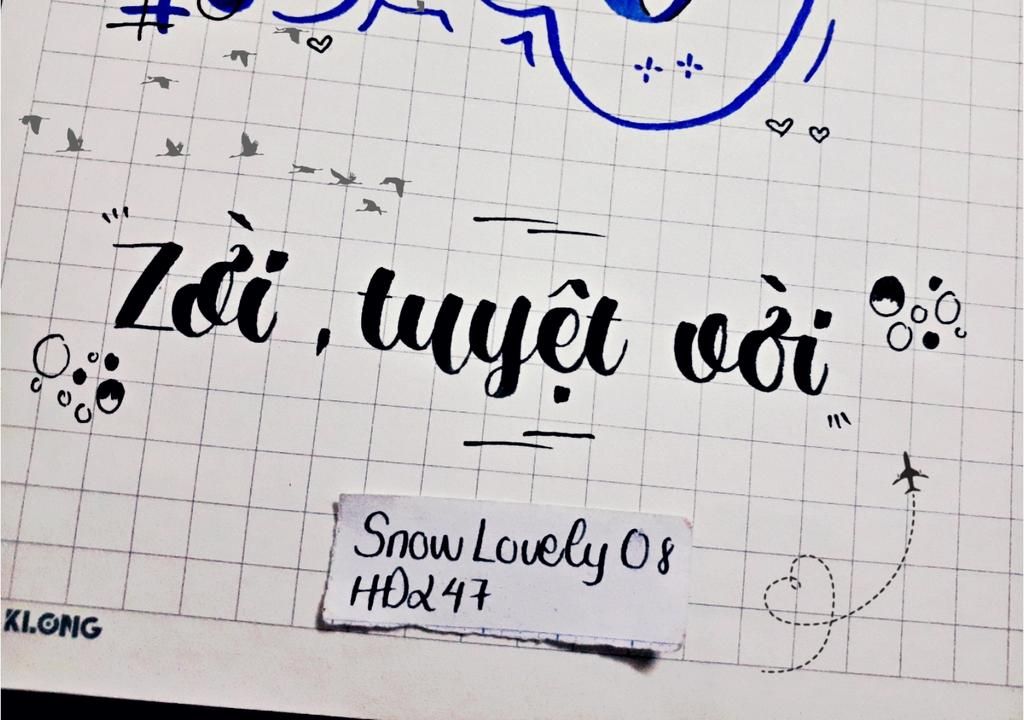 #
"Zời, tuyệt vời"
Snow Lovely 08
HD247
KLONG